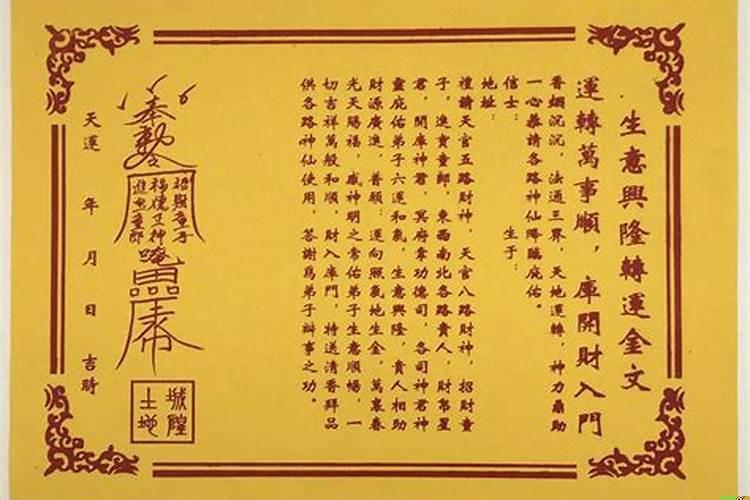 生意興隆轉運金文
運轉萬事順，庫開財入門
香烟沉沉，法通三界，天地運轉，神力鼎助
一心恭請各路神仙降臨庇佑。
信士：　　　　生于：
地址：
禮請天官五路財神，天官八路財神，招財童
子，進寶童郎，東西南北各路貴人，財帛星
君，開庫神君，冥府掌功德司，各司神君神
靈庇佑弟子六運和氣，生意興隆，貴人相助
財源廣進，普願：運向照氣地生金，萬裏春
光天賜福，感神明之常佑弟子生意順暢，一
切吉祥萬般和順，財入庫門，特送清香拜品
供各路神仙使用，答謝爲弟子辦事之功。
奉勅令
招財童子
福德正神
進寶童郎
城隍
土地
天運　年　月　日　吉時